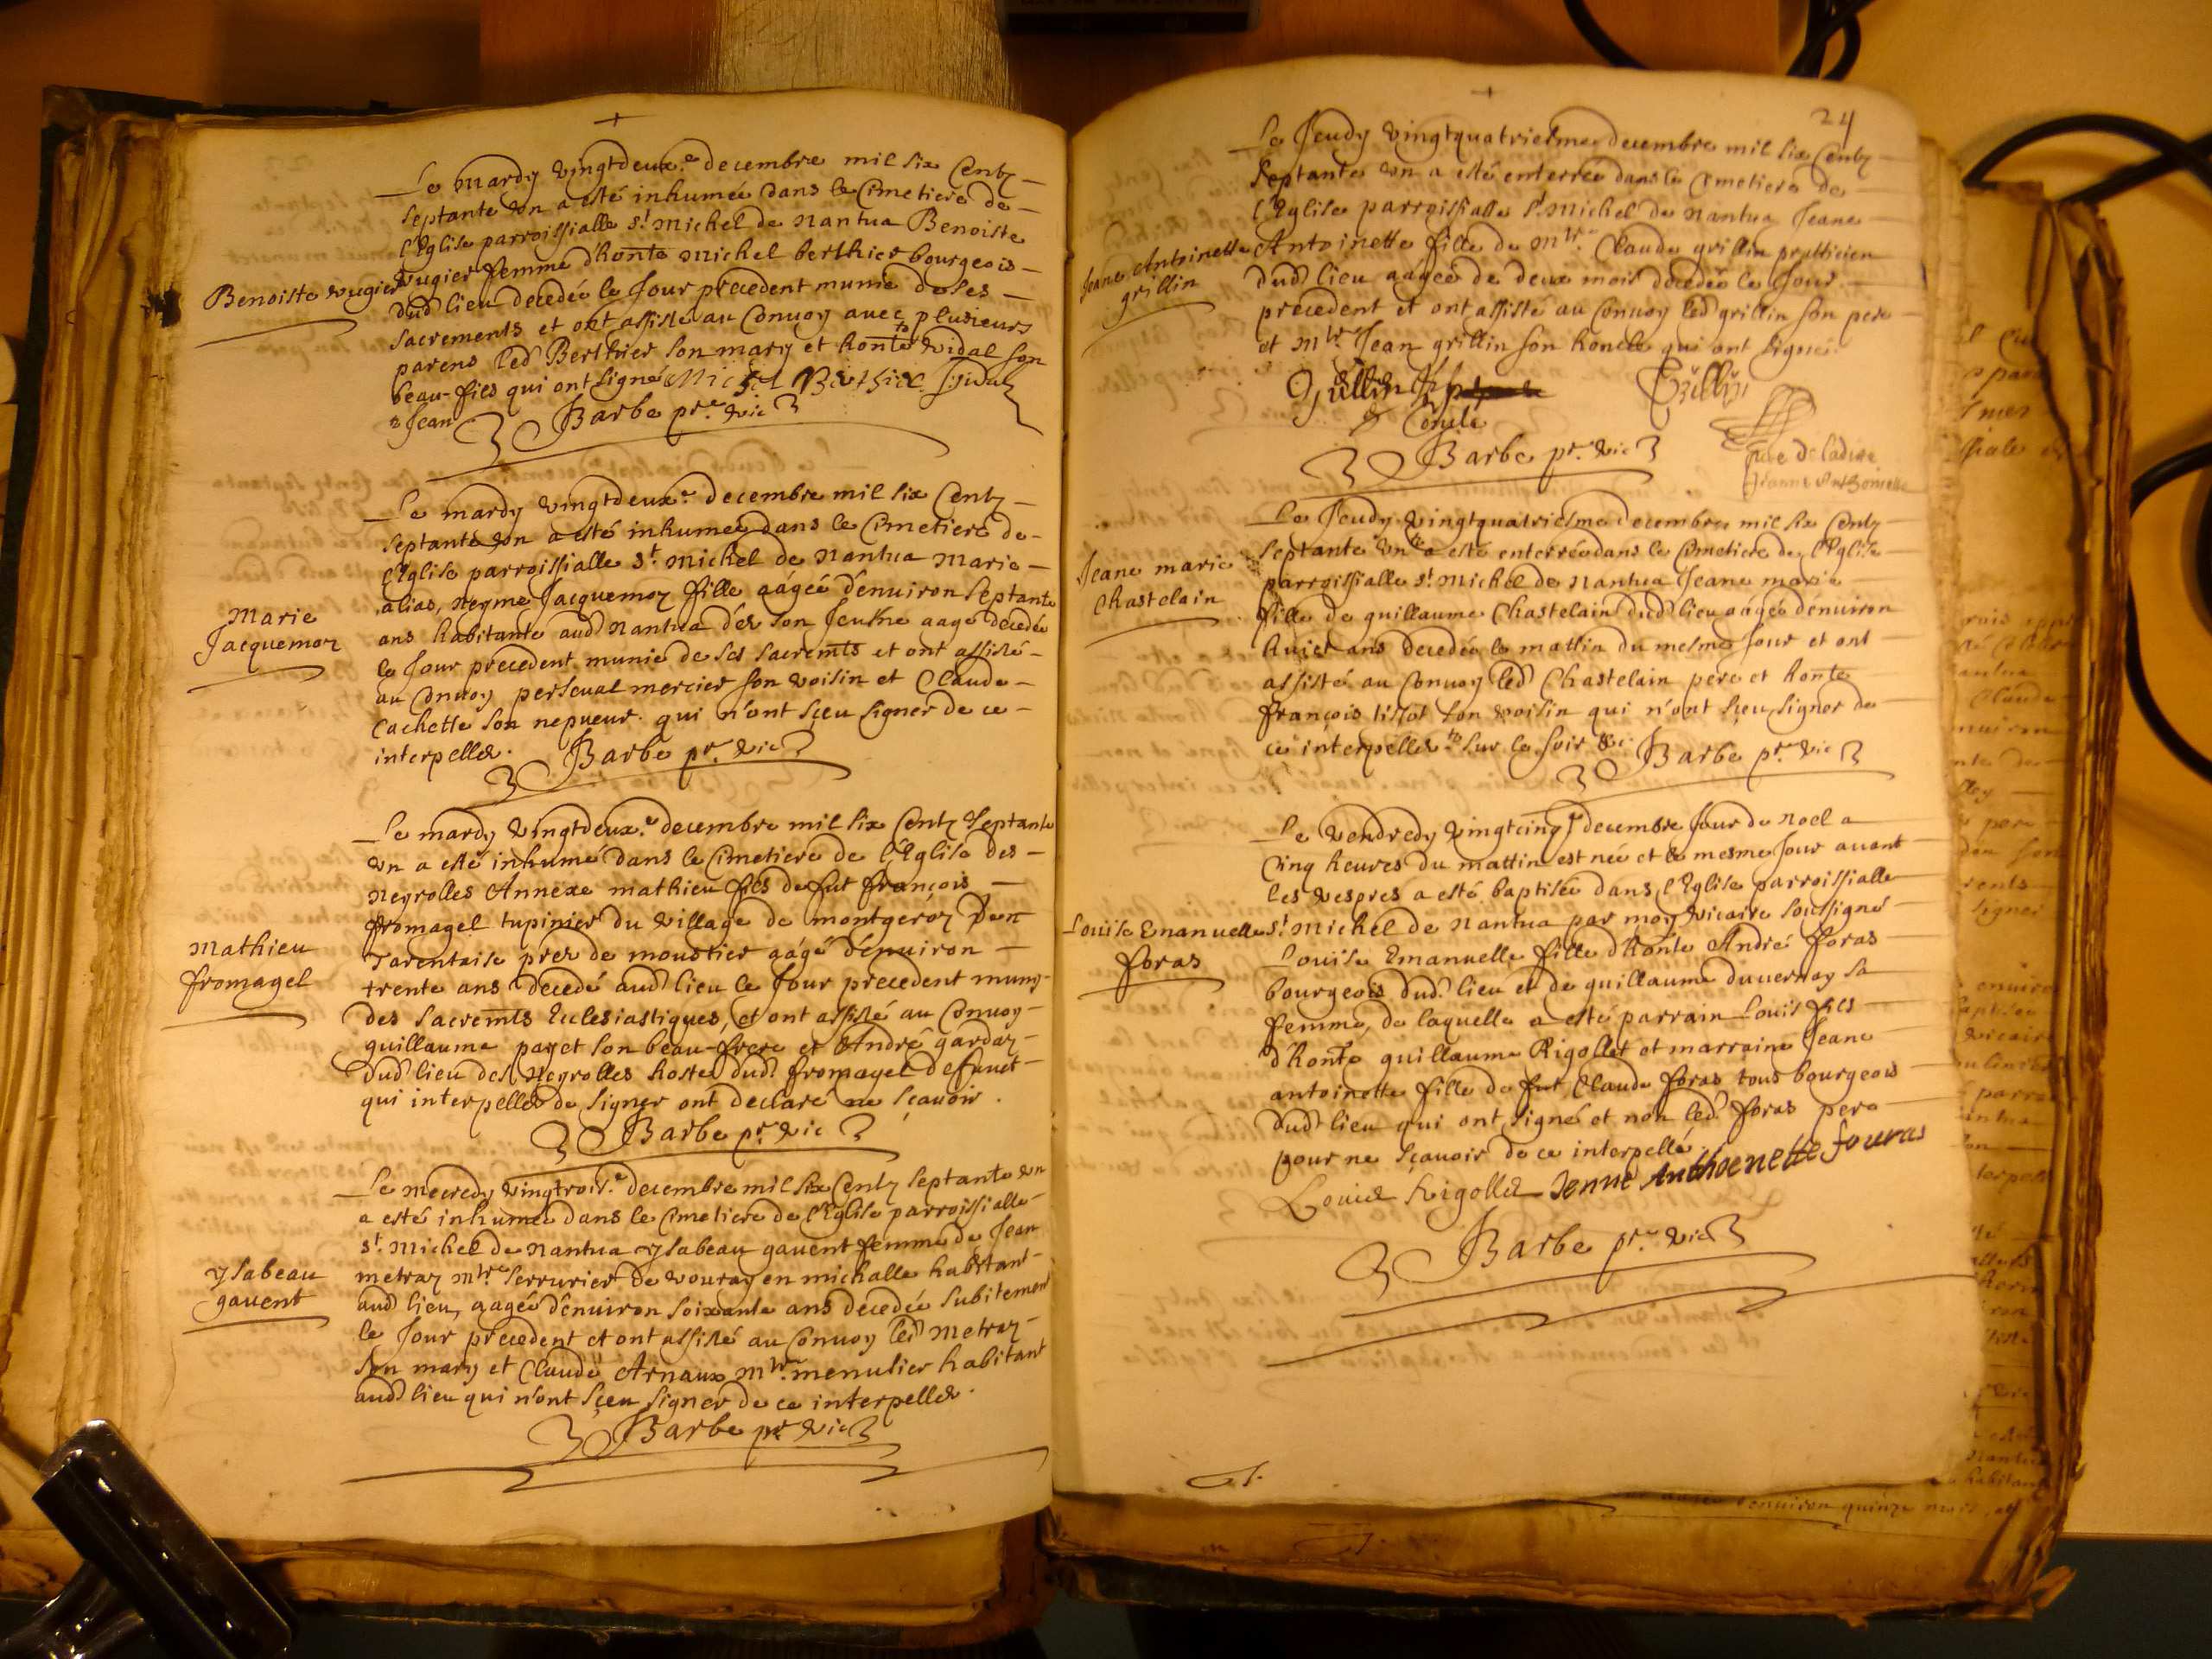 Le Mardy vingtdeux.e decembre mil six Centz
septante un a esté inhumée dans le Cimetiere de
l'Eglise parroissialle st. Michel de Nantua Benoiste
Benoiste vugier
vugier femme d'honte michel berthier bourgeois
dud lieu decedée le Jour precedent munie de ses
sacrements et ont assisté au Convoy avec plusieurs
parens led Berthier son mary et honte Vidal son
beau-fils qui ont signé Michel Berthier Vidal
Jean
Barbe pr.e vic
Le mardy vingtdeux.e decembre mil six Centz
septante un a esté inhumée dans le Cimetiere de
l'Eglise parroissialle st. Michel de Nantua Marie
alias, neyme Jacquemoz fille aágée d'environ septante
Marie
Jacquemoz
ans habitante aud Nantua déz son Jeune aage decedée
le Jour precedent munie de ses sacremts et ont assisté
au Convoy perseual mercier son voisin et Claude
Cachette son nepueur qui n'ont sçeu signer de ce
interpellez. Barbe pr. vic
Le mardy vingtdeux.e decembre mil six Centz septante
un a esté inhumé dans le Cimetiere de l'Eglise des
Neyrolles Annexe mathieu fils de fut françois
fromagel tupinier du village de montgeroz en
mathieu
fromagel
Tarentaise prez de moustier aágé d'environ
trente ans decedé aud lieu le Jour precedent muny
des sacremts Ecclesiastiques, et ont assisté au Convoy
guillaume payet son beau-frere et André gardaz
dud lieu des Neyrolles hoste dud fromagel defunct
qui interpellez de signer ont declaré ne sçavoir.
Barbe pr. vic
Le mecredy vingtrois.e decembre mil six Centz septante un
a esté inhumée dans le Cimetiere de l'Eglise parroissialle
st. Michel de Nantua ysabeau gauent femme de Jean
metraz mtre serrurier de vouray en michalle habitant
ysabeau
gauent
aud lieu, aagée d'environ soixante ans decedée subitement
le Jour precedent et ont assisté au Convoy led metraz
son mary et Claude Arnaux mtre menusier habitant
aud lieu qui n'ont sçeu signer de ce interpellez.
Barbe pr. vic
24
Le Jeudy vingtquatriesme decembre mil six Centz
septante un a esté enterrée dans le Cimetiere de
l'Eglise parroissialle st. Michel de Nantua Jeane
Jeane Antoinette
grillin
Antoinette fille de mtre Claude grillin pratticien
dud lieu aágée de deux mois decedée le Jour
precedent et ont assisté au Convoy led grillin son pere
et mtre Jean grillin son honcle qui ont signé.
Grillin
Grillin
père de ladite
Jeanne Anthoinette
Barbe pr. vic
Le Jeudy vingtquatriesme decembre mil six Centz
septante un a esté enterrée dans le Cimetiere de l'Eglise
Jeane marie
Chastelain
parroissialle st. Michel de Nantua Jeane marie
fille de guillaume Chastelain dud lieu aágée d'environ
huict ans decedée le mattin du mesme Jour et ont
assisté au Convoy led Chastelain pere et honte
françois tissot son voisin qui n'ont sçeu signer de
ce interpellez sur le soir Barbe pr. vic
Le vendredy vingtcinq.e decembre Jour de noel a
Cinq heures du mattin est née et le mesme Jour avant
les vespres a esté baptisée dans l'Eglise parroissialle
st. Michel de Nantua par moy vicaire soussigné
Louise Emanuelle
foras
Louïse Emanuelle fille d'honte André foras
bourgeois dud. lieu et de guillaume duvernay sa
femme, de laquelle a esté parrain Louïs fils
d'honte guillaume Rigollet et marraine Jeane
antoinette fille de fut Claude foras tous bourgeois
dud lieu qui ont signé et non led foras pere
pour ne sçavoir de ce interpellé.
Louis Rigollet Jenne Anthoenette fouras
Barbe pr.e vic